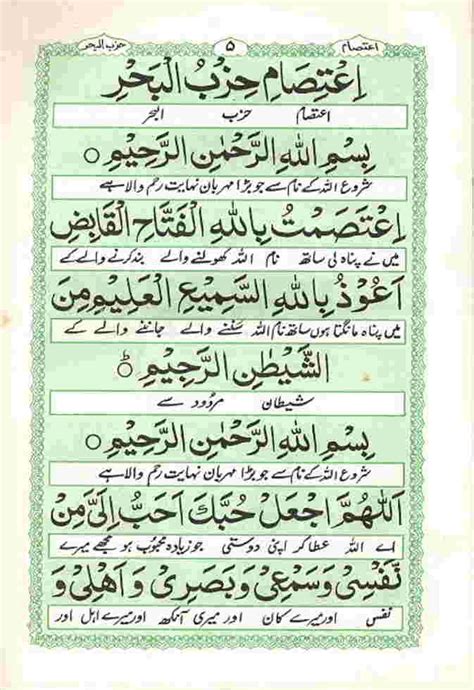 اعتصام ۵ حزب البحر
اِعْتِصَامِ حِزْبُ الْبَحْرِ
اعتصام حزب البحر
بِسْمِ اللهِ الرَّحْمٰنِ الرَّحِيْمِ ○
شروع اللہ کے نام سے جو بڑا مہربان نہایت رحم والا ہے
اِعْتَصَمْتُ بِاللهِ الْفَتَّاحِ الْقَابِضِ
میں نے پناہ لی ساتھ نام اللہ کھولنے والے بند کرنے والے کے
اَعُوْذُ بِاللهِ السَّمِيْعِ الْعَلِيْمِ مِنَ
میں پناہ مانگتا ہوں ساتھ نام اللہ سننے والے جاننے والے کے
الشَّيْطٰنِ الرَّجِيْمِ ○
شیطان مردود سے
بِسْمِ اللهِ الرَّحْمٰنِ الرَّحِيْمِ ○
شروع اللہ کے نام سے جو بڑا مہربان نہایت رحم والا ہے
اَللّٰهُمَّ اجْعَلْ حُبَّكَ اَحَبَّ اِلَیَّ مِنْ
اے اللہ عطا کر اپنی دوستی جو زیادہ محبوب ہو مجھے میرے
نَّفْسِیْ وَسَمْعِیْ وَبَصَرِیْ وَاَهْلِیْ وَ
نفس اور میرے کان اور میری آنکھ اور میرے اہل اور